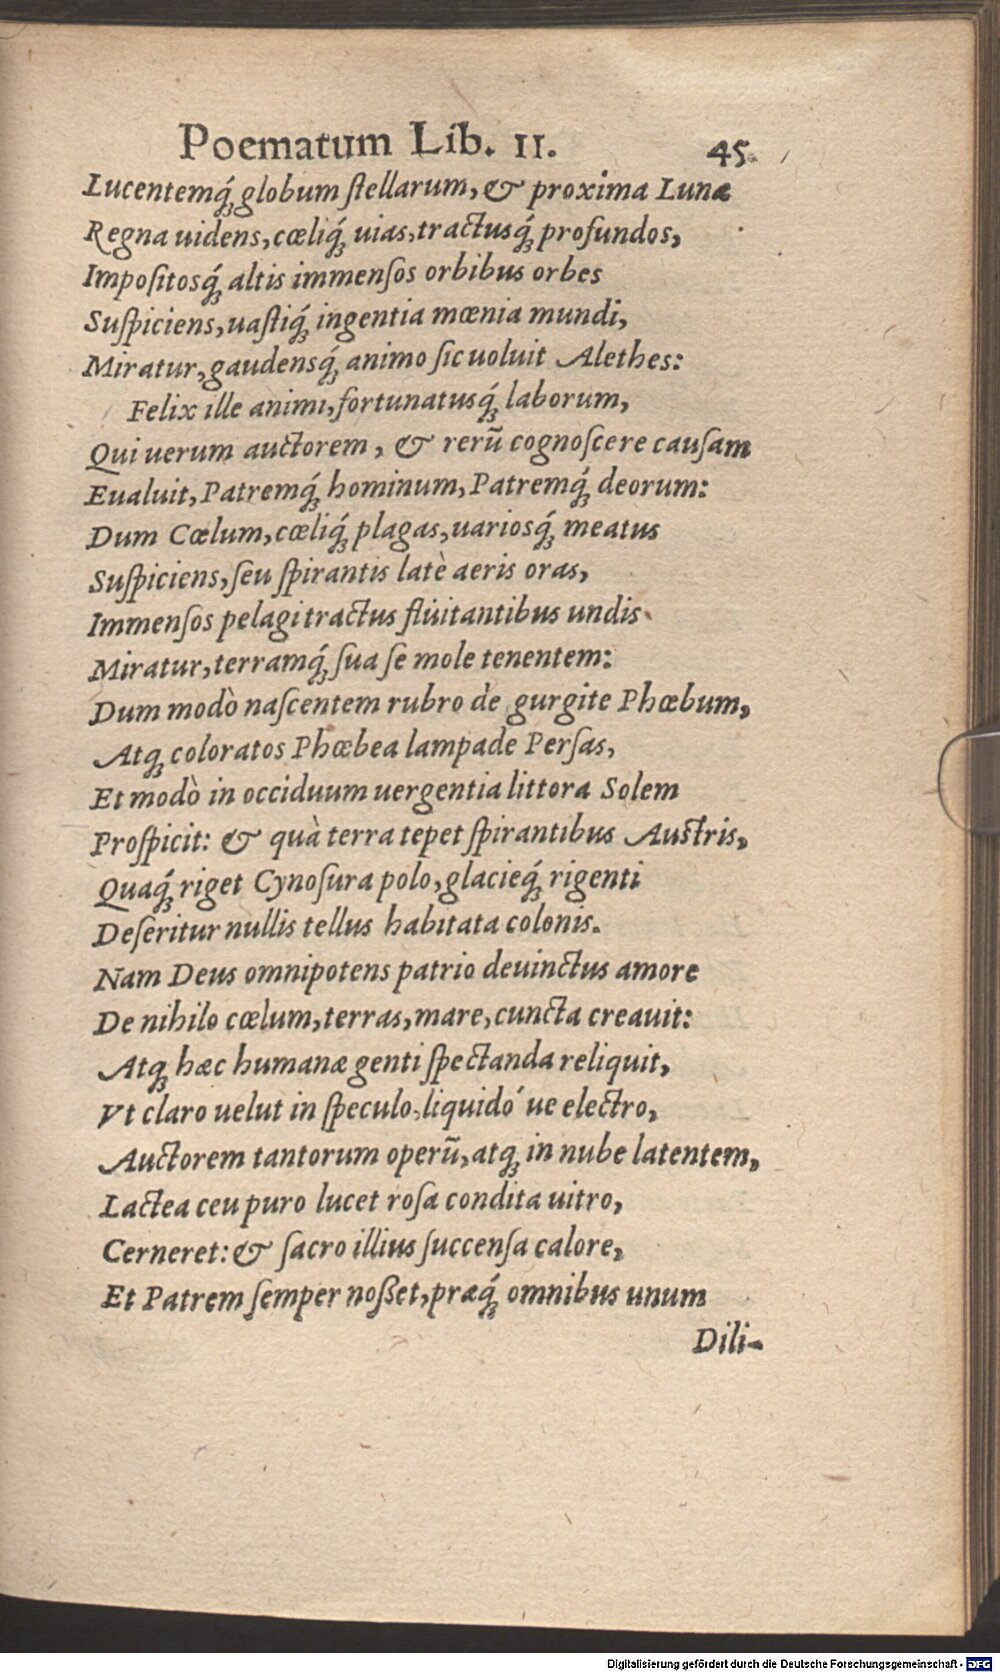 Poematum Lib. II. 45
Lucentemq́; globum ſtellarum, & proxima Lunæ
Regna uidens, cœliq́; uias, tractusq́; profundos,
Impoſitosq́; altis immenſos orbibus orbes
Suſpiciens, uaſtiq́; ingentia mœnia mundi,
Miratur, gaudensq́; animo ſic uoluit Alethes:
Felix ille animi, fortunatusq́; laborum,
Qui uerum auctorem, & rerū cognoſcere cauſam
Eualuit, Patremq́; hominum, Patremq́; deorum:
Dum Cœlum, cœliq́; plagas, uariosq́; meatus
Suſpiciens, ſeu ſpirantis latè aeris oras,
Immenſos pelagi tractus fluitantibus undis
Miratur, terramq́; ſua ſe mole tenentem:
Dum modò naſcentem rubro de gurgite Phœbum,
Atq; coloratos Phœbea lampade Perſas,
Et modò in occiduum uergentia littora Solem
Proſpicit: & quà terra tepet ſpirantibus Auſtris,
Quaq́; riget Cynoſura polo, glacieq́; rigenti
Deſeritur nullis tellus habitata colonis.
Nam Deus omnipotens patrio deuinctus amore
De nihilo cœlum, terras, mare, cuncta creauit:
Atq; hæc humanæ genti ſpectanda reliquit,
Vt claro uelut in ſpeculo, liquidó ue electro,
Auctorem tantorum operū, atq; in nube latentem,
Lactea ceu puro lucet roſa condita uitro,
Cerneret: & ſacro illius ſuccenſa calore,
Et Patrem ſemper noßet, præq́; omnibus unum
Dili-
Digitalisierung gefördert durch die Deutsche Forschungsgemeinschaft - DFG